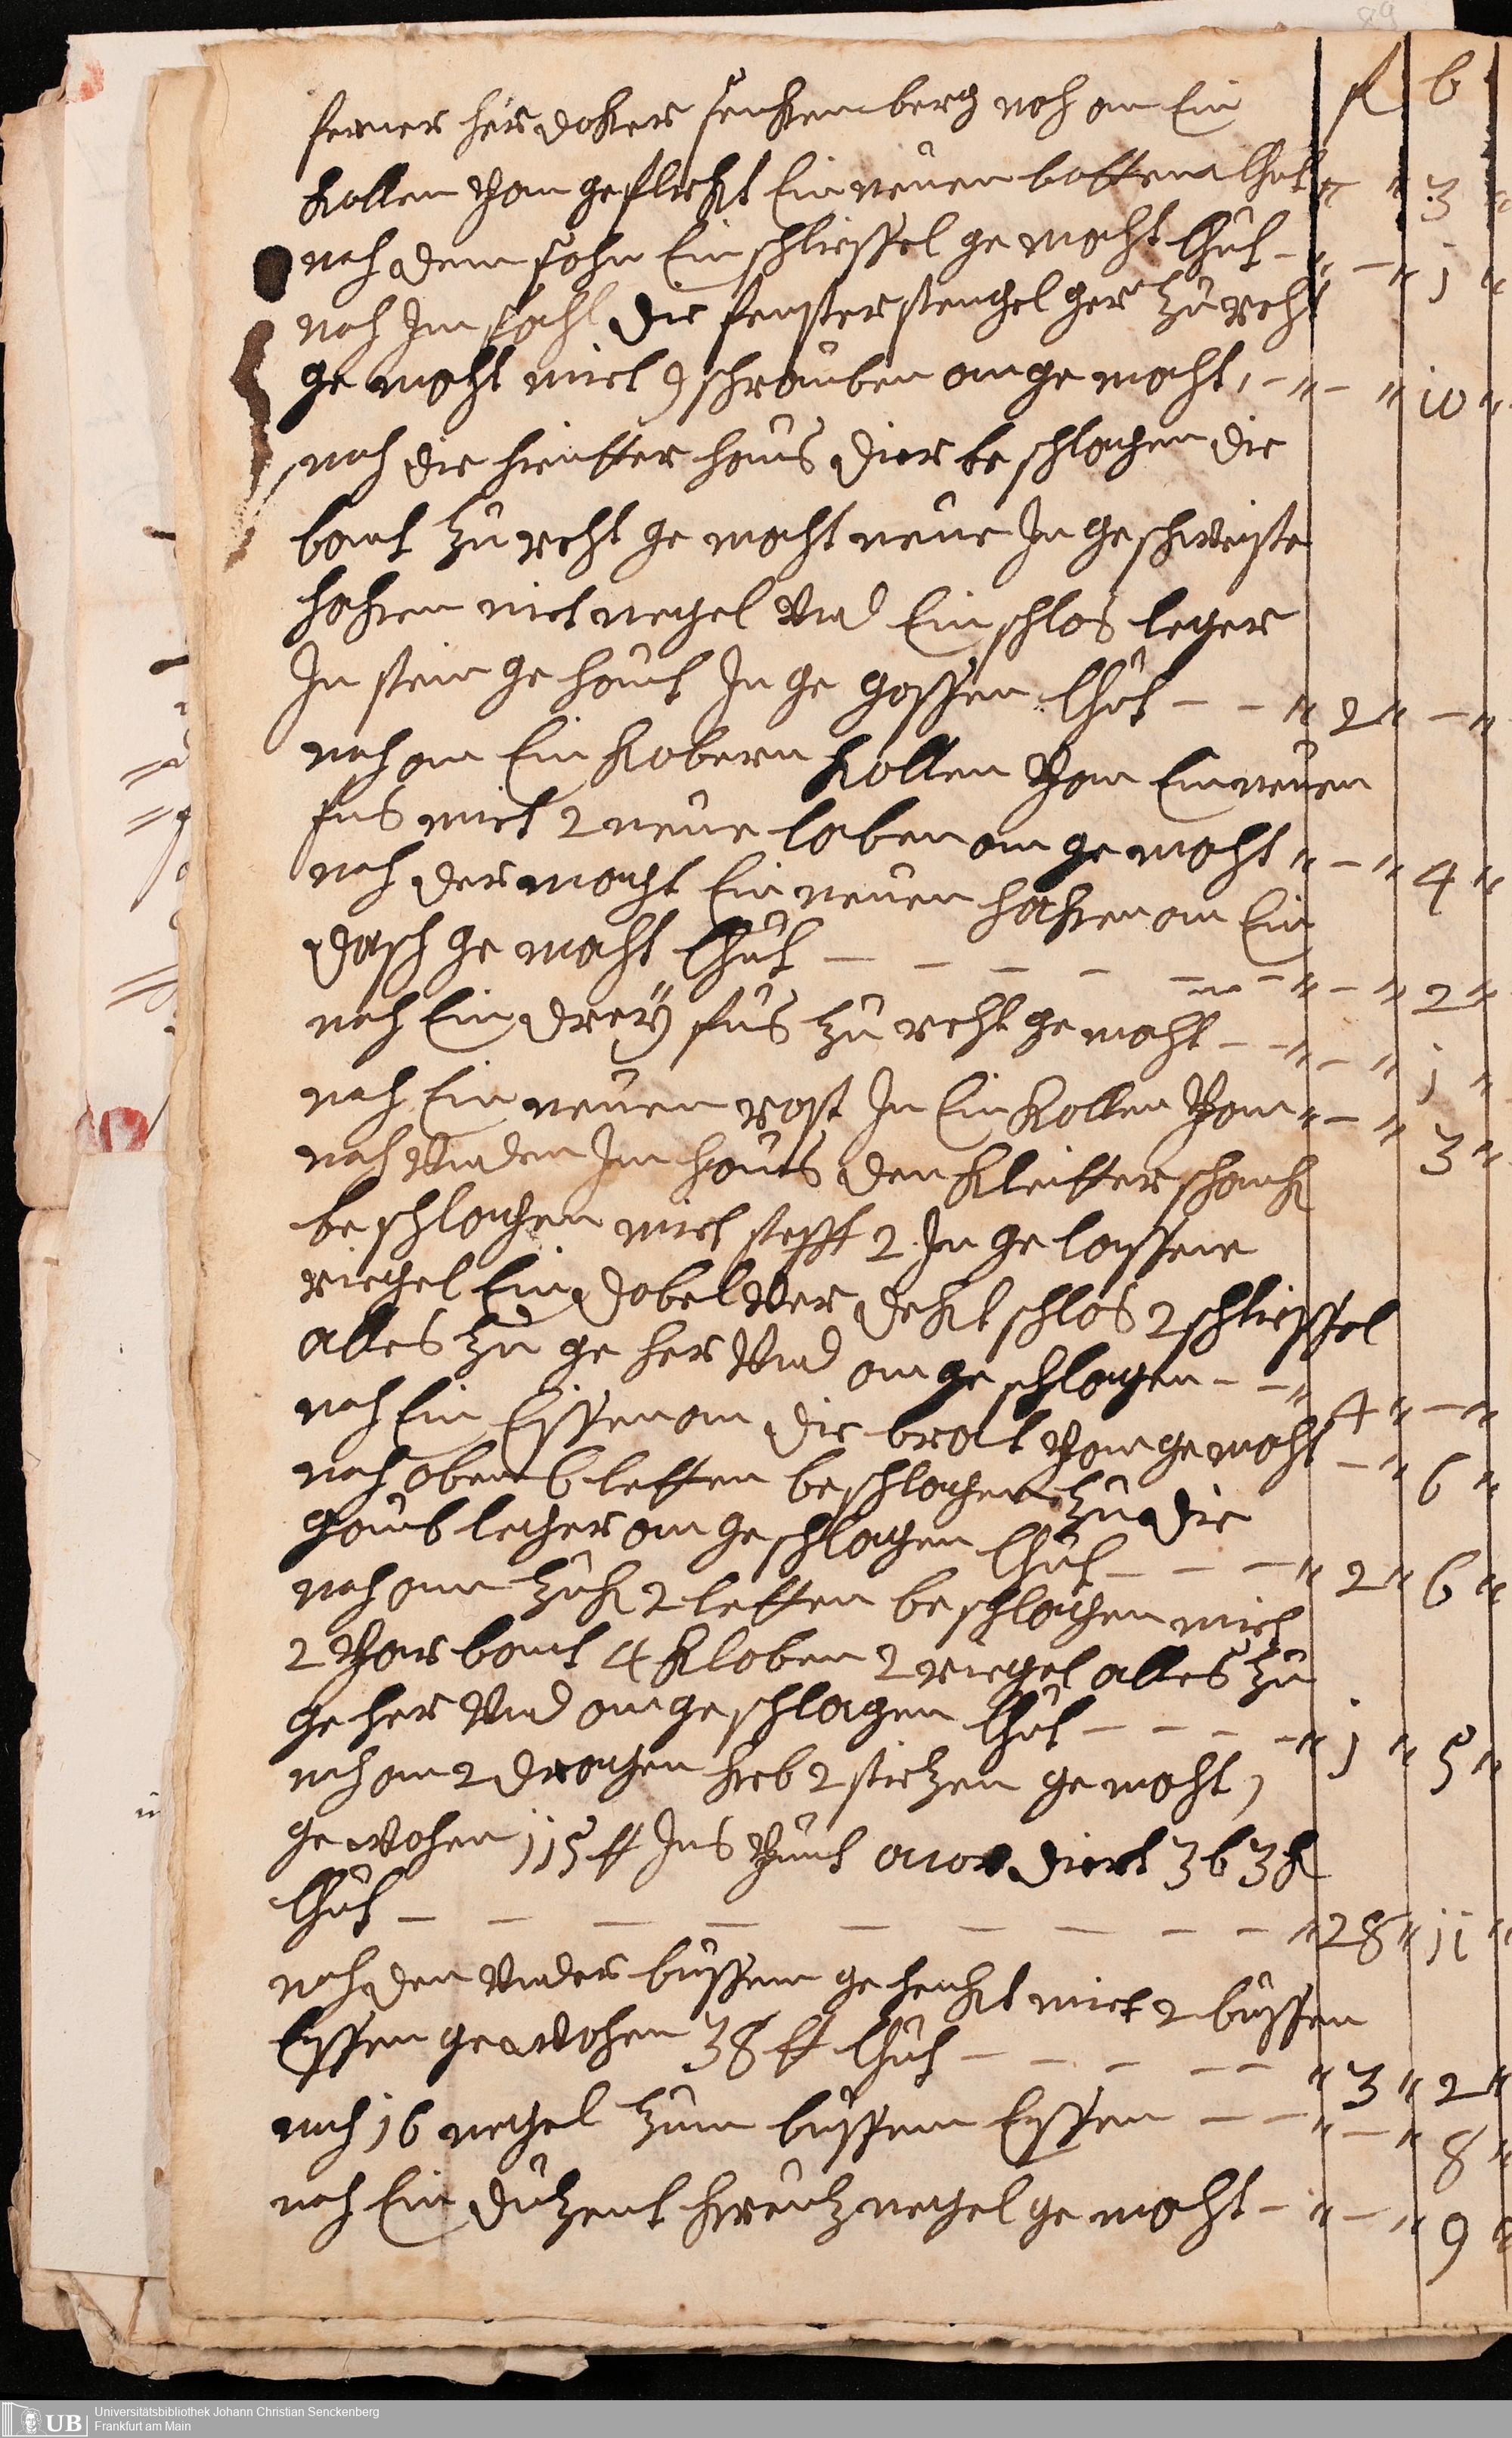 89
fl b
ferner her dokter senkemberg noh am Ein
kollen Pan geflickt Ein neuen botten thut " " 3 "
noh dem sohn Ein schliessel ge macht thut - " - " 1 "
noh Im sahl die fenster stengel ger zu reht
ge macht mict 9 schrauben an ge macht, - " - " 10 "
noh die hinder haus dier be schlagen die
bant zu recht ge macht neue In geschweiste
hohren nict negel Und Ein schlos leger
In stein ge hauet In ge gossen thut - - " 2 " - "
noh am Ein kobern kollen Pan Ein neuen
fus mict 2 neue loben an ge macht " - " 4 "
noh der macht Ein neuen hacken an Ein
dasch ge macht thut - - - - - - " - " 2 "
noh Ein drey fus zu reht ge macht - - " - " 1 "
noh Ein neuen rost In Ein kollen Pan " - " 3 "
noh Unden Im haus den kleitter schank
be schlagen mict stefft 2 In ge lassene
riegel Ein dobel Ver deckt schlos 2 schliessel
alles zu ge her Und an ge schlagen - - " 4 " - "
noh Ein Eissen an die brat Pan ge macht - " 6 "
noh oben 6 letten beschlagen zu die
gaub lecher an ge schlagen thut - - - " 2 " 6 "
noh am zuh 2 letten be schlagen mict
2 Par bant 4 kloben 2 riegel alles zu
ge her Und an ge schlagen thut - - - - " 1 " 5 "
noh am 2 drachen kreb 2 stietzen ge macht,
ge wohen 115 ℔ Ins Punt acordiert 3 b 3 h
thut - - - - - - - - - " 28 " 11 "
noh den Under bussem ge henckt mict 2 bussen
Eyssen ge wohen 38 ℔ thut - - - - - " 3 " 2 "
noh 16 negel zum bussem Eyssen - - " - " 8 "
noh Ein dutzent kreutz negel ge macht - " - " 9 "
UB Universitätsbibliothek Johann Christian Senckenberg
Frankfurt am Main